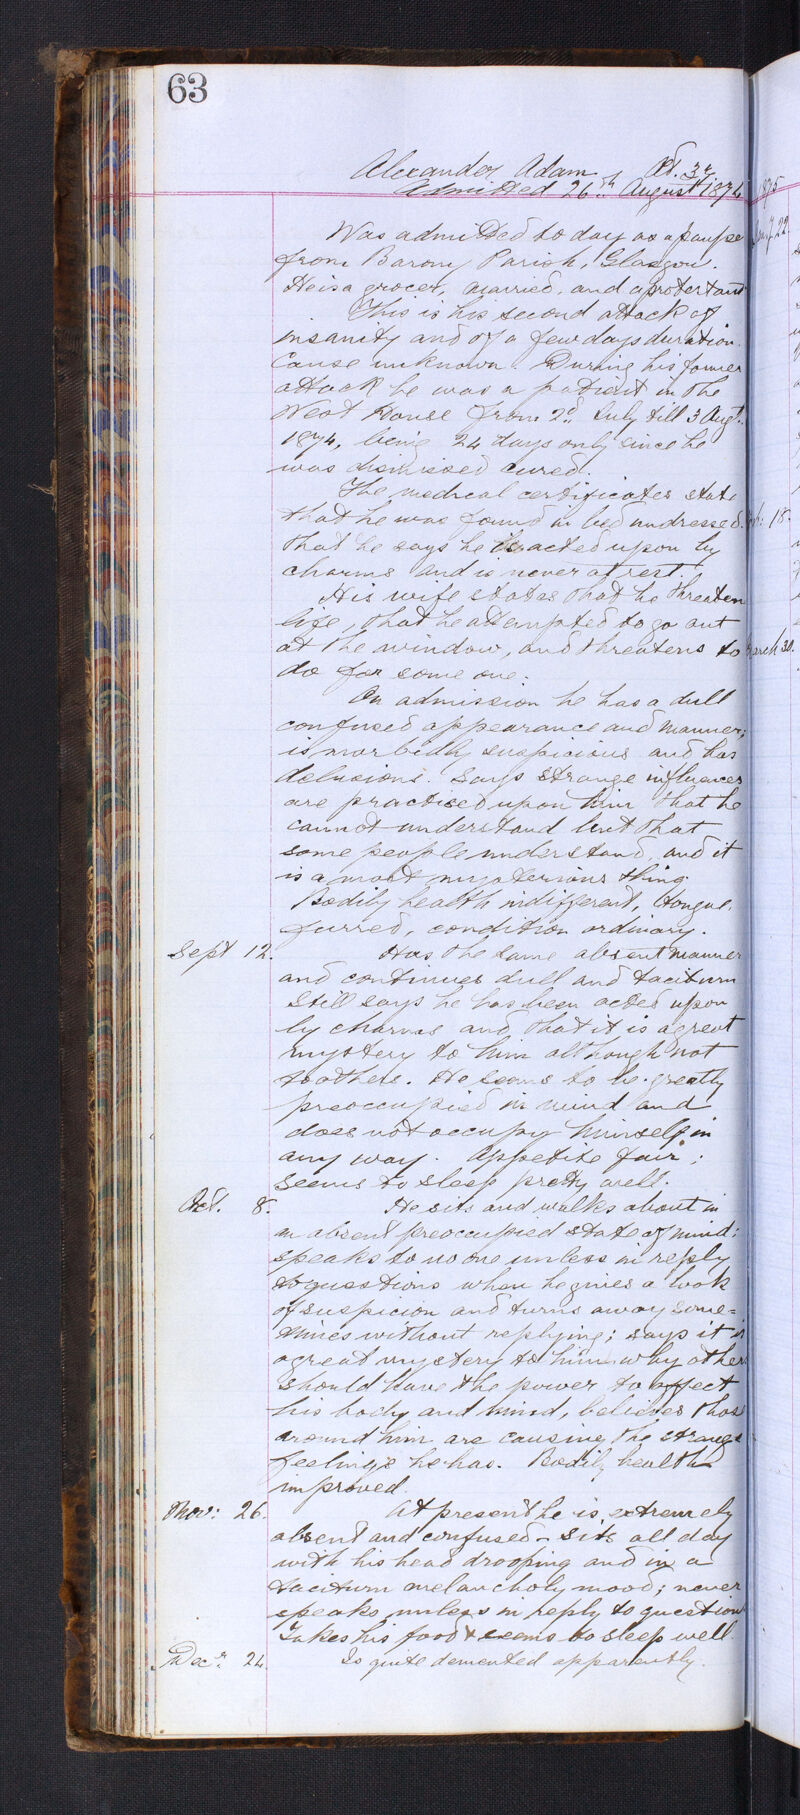 63
Alexander Adam Æt. 32
Admitted 26th August 1874
Was admitted to day as a paupe
from Barony Parish, Glasgow.
He is a grocer, married, and a protestant
This is his second attack of
insanity and of a few days duration.
Cause unknown. During his former
attack he was a patient in the
West House from 2d July till 3 Augt.
1874, being 24 days only since he
was dismissed cured.
The medical certificates state
that he was found in bed undressed.
that he says he is acted upon by
charms and is never at rest.
His wife states that he threaten
life, that he attempted to go out
at the window, and threatens to
do for some one.
On admission he has a dull
confused appearance and manner;
is morbidly suspicious and has
delusions. Says strange influences
are practised upon him that he
cannot understand but that
some people understand, and it
is a most mysterious thing.
Bodily health indifferent, tongue
furred, condition ordinary.
Sept 12. Has the same absent manner
and continues dull and taciturn
Still says he has been acted upon
by charms and that it is a great
mystery to him although not
to others. He seems to be greatly
preoccupied in mind and
does not occupy himself in
any way. Appetite fair;
seems to sleep pretty well.
Oct. 8. He sits and walks about in
an absent preoccupied state of mind;
speaks to no one unless in reply
to questions when he gives a look
of suspicion and turns away some=
times without replying; says it is
a great mystery to him why others
should have the power to affect
his body and mind, believes those
around him are causing the strange
feelings he has. Bodily health
improved.
Nov: 26. At present he is extremely
absent and confused - sits all day
with his head drooping and in a
taciturn melancholy mood; never
speaks unless in reply to question
Takes his food & seems to sleep well.
Decr. 24. Is quite demented apparently.
1875
22
18.
March 30.